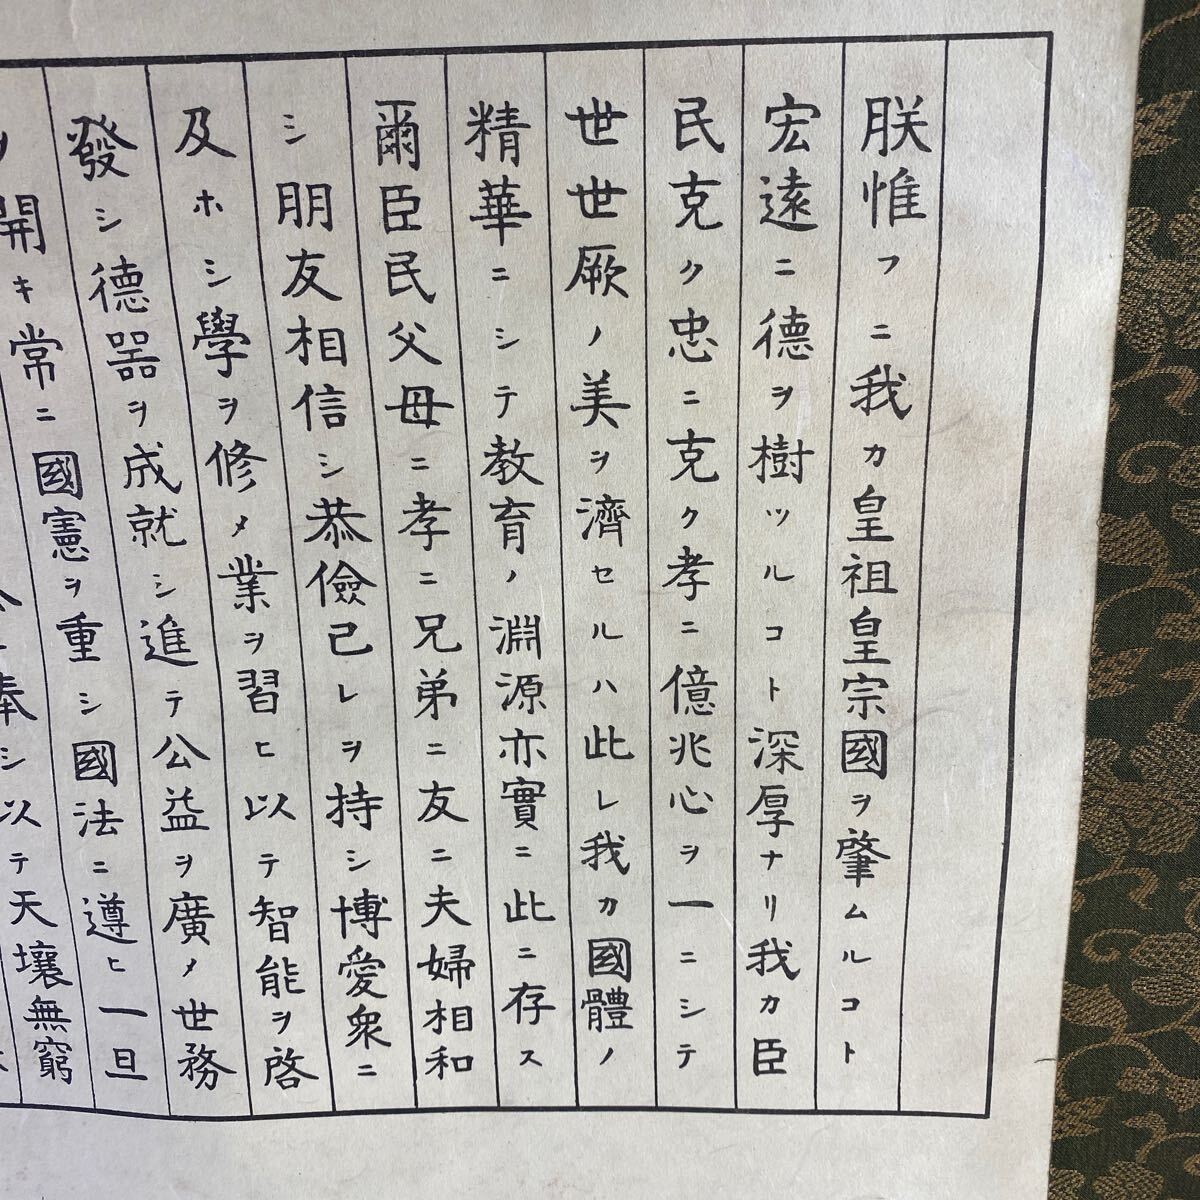 朕惟フニ我カ皇祖皇宗國ヲ肇ムルコト
宏遠ニ德ヲ樹ツルコト深厚ナリ我カ臣
民克ク忠ニ克ク孝ニ億兆心ヲ一ニシテ
世世厥ノ美ヲ濟セルハ此レ我カ國體ノ
精華ニシテ教育ノ淵源亦實ニ此ニ存ス
爾臣民父母ニ孝ニ兄弟ニ友ニ夫婦相和
シ朋友相信シ恭儉己レヲ持シ博愛衆ニ
及ホシ學ヲ修メ業ヲ習ヒ以テ智能ヲ啓
發シ德器ヲ成就シ進テ公益ヲ廣メ世務
ヲ開キ常ニ國憲ヲ重シ國法ニ遵ヒ一旦
奉シ以テ天壤無窮